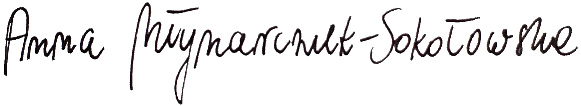 Anna Młynarczuk-Sokołowska